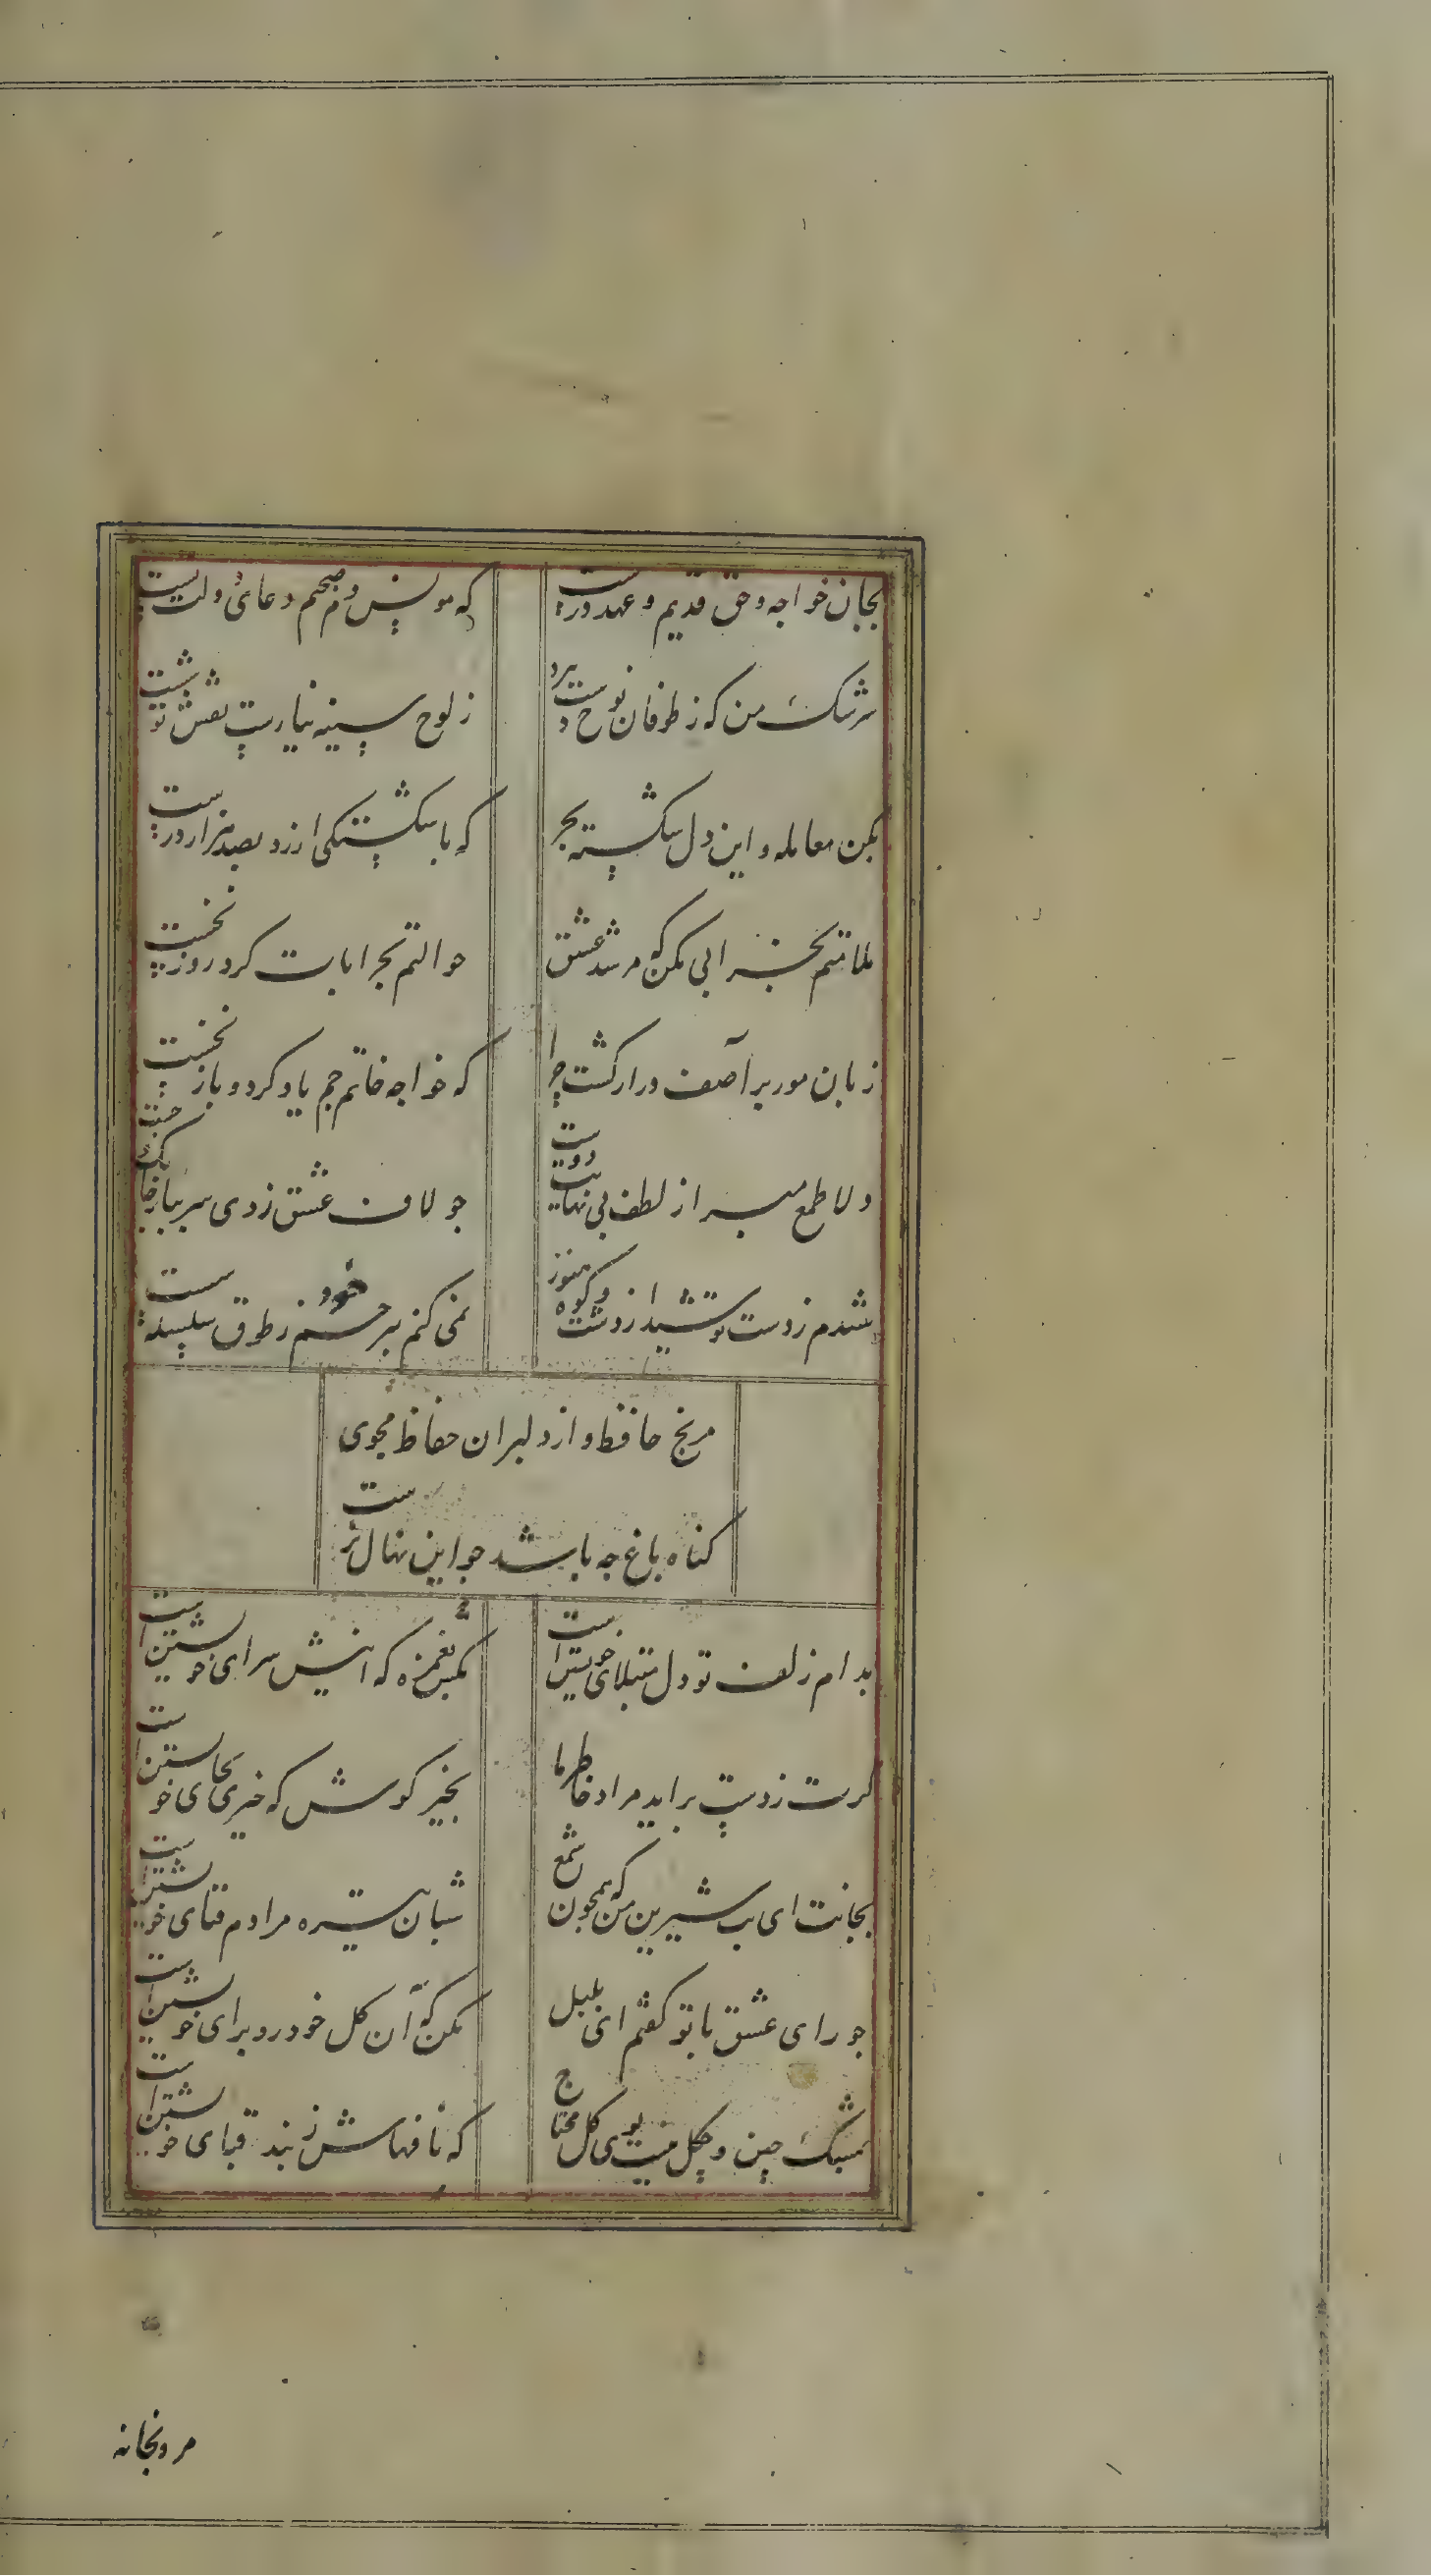 بجان خواجه و حق قدیم و عهد درست
که مونس دم صبحم دعای دولت تست
سرشک من که ز طوفان نوح دست برد
ز لوح سینه نیارست نقش تو شست
بکن معامله و این دل شکسته بخر
که با شکستکی ارزد بصد هزار درست
ملامتم بخرابی مکن که مرشد عشق
حوالتم بخرابات کرد روز نخست
زبان مور بر آصف دراز کشت چرا
که خواجه خاتم جم یاوه کرد و باز نجست
دلا طمع مبر از لطف بی نهایت دوست
جو لاف عشق زدی سر بباز چابک و چست
شدم ز دست تو شیدا ز دشت و کوه هنوز
نمی کنی بترحم ز طوق سلسله سست
مرنج حافظ و از دلبران حفاظ مجوی
کناه باغ جه باشد جو این نهال نرست
بدام زلف تو دل مبتلای خویشتن است
بکش بغمزه که اینش سزای خویشتن است
کرت ز دست برآید مراد خاطر ما
بخیر کوش که خیری بجای خویشتن است
بجانت ای بت شیرین من که همچون شمع
شبان تیره مرادم فنای خویشتن است
جو رای عشق با تو کفتم ای بلبل
مکن که آن کل خودرو برای خویشتن است
بمشک چین و چکل نیست بوی کل محتاج
که نافهاش ز بند قبای خویشتن است
مرو بخانه